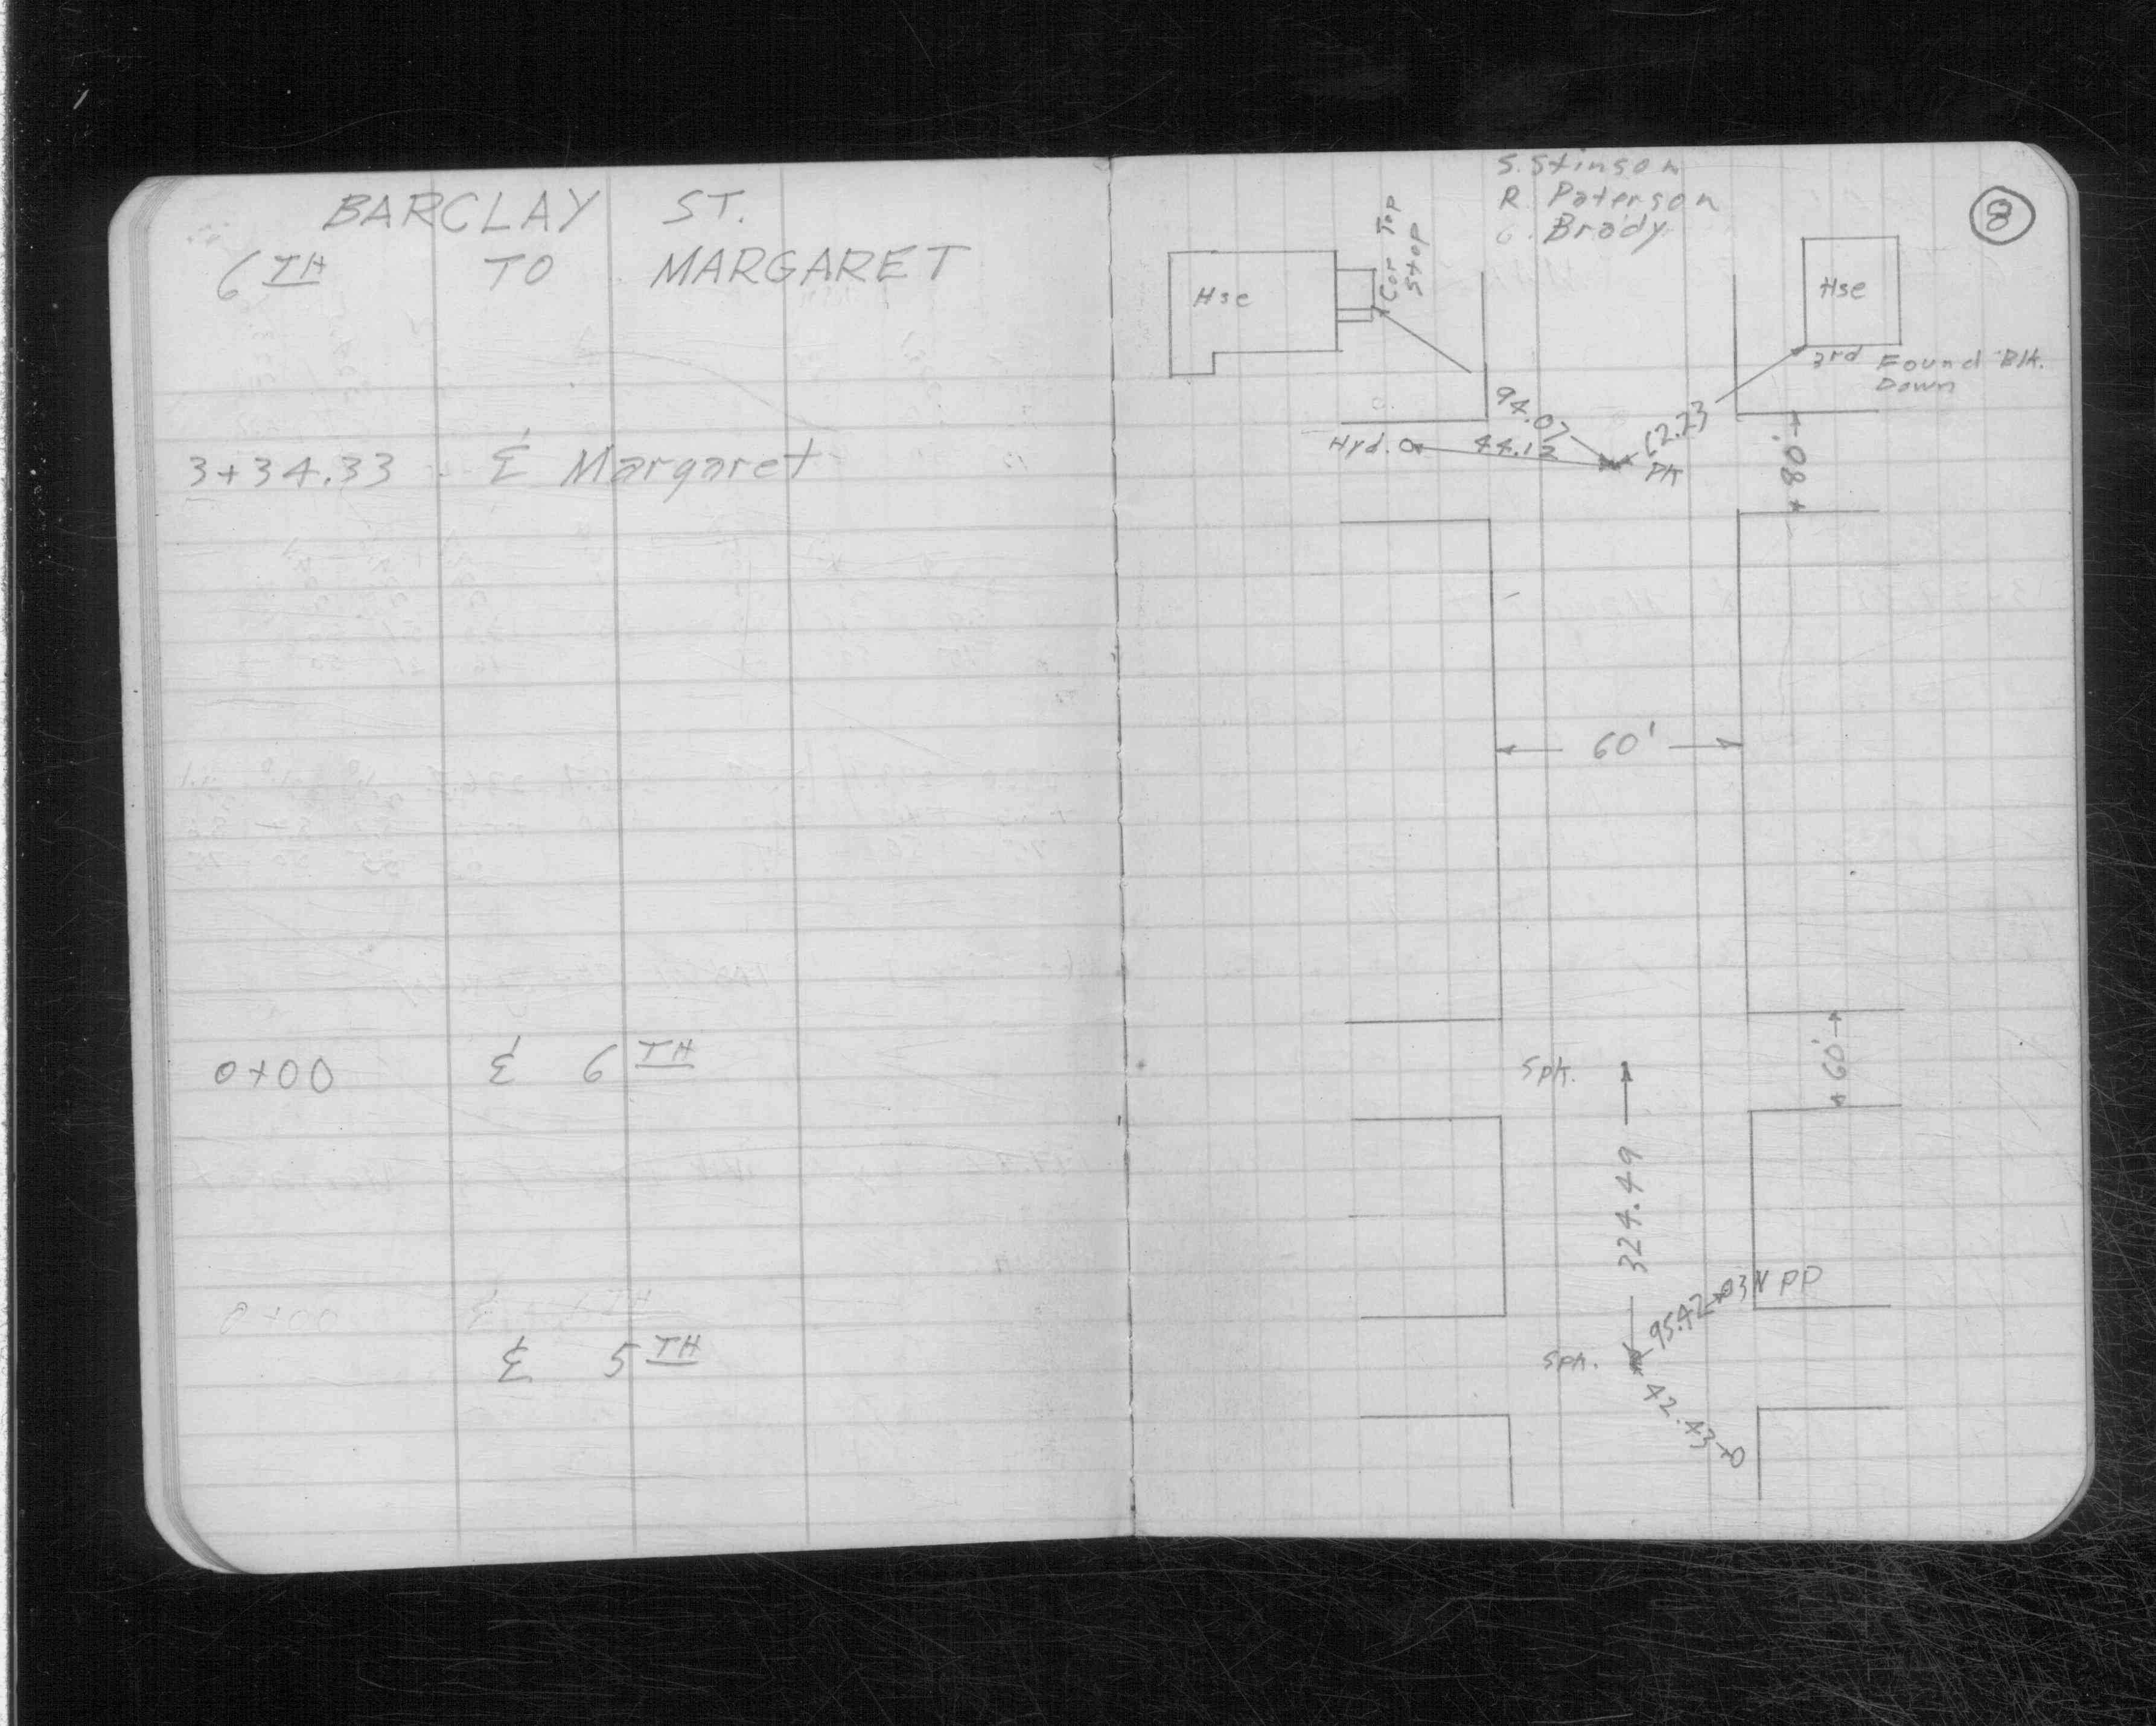 BARCLAY ST.
6TH TO MARGARET
3+34.33 ℄ Margaret
0+00 ℄ 6TH
℄ 5TH
S. Stinson
R. Paterson
Brady
8
Hse
Cor Top
Stop
Hse
3rd Found Blk.
Down
94.07
Hyd. 44.12
PK
80'
60'
Spk.
60'
324.49
95.42 N PP
Spk.
42.43